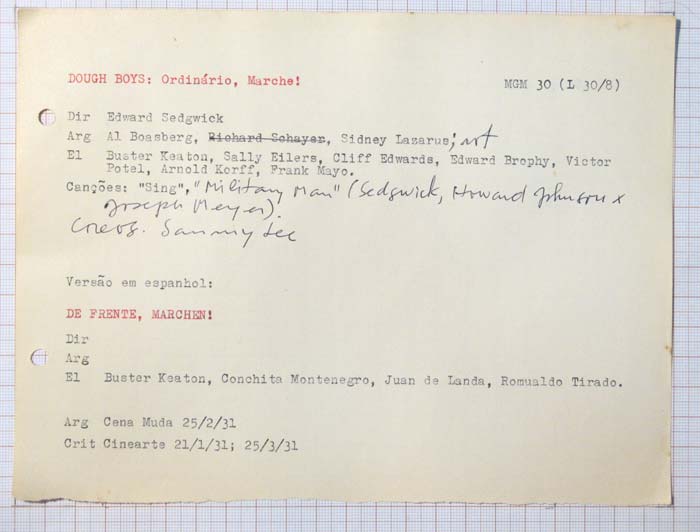 DOUGH BOYS: Ordinário, Marche! MGM 30 (L 30/8)
Dir Edward Sedgwick
Arg Al Boasberg, Richard Schayer, Sidney Lazarus;
El Buster Keaton, Sally Eilers, Cliff Edwards, Edward Brophy, Victor
Potel, Arnold Korff, Frank Mayo.
Canções: "Sing", "Military Man" (Sedgwick, Howard Johnson x
Joseph Meyer).
Creog. Sammy Lee
Versão em espanhol:
DE FRENTE, MARCHEN!
Dir
Arg
El Buster Keaton, Conchita Montenegro, Juan de Landa, Romualdo Tirado.
Arg Cena Muda 25/2/31
Crit Cinearte 21/1/31; 25/3/31